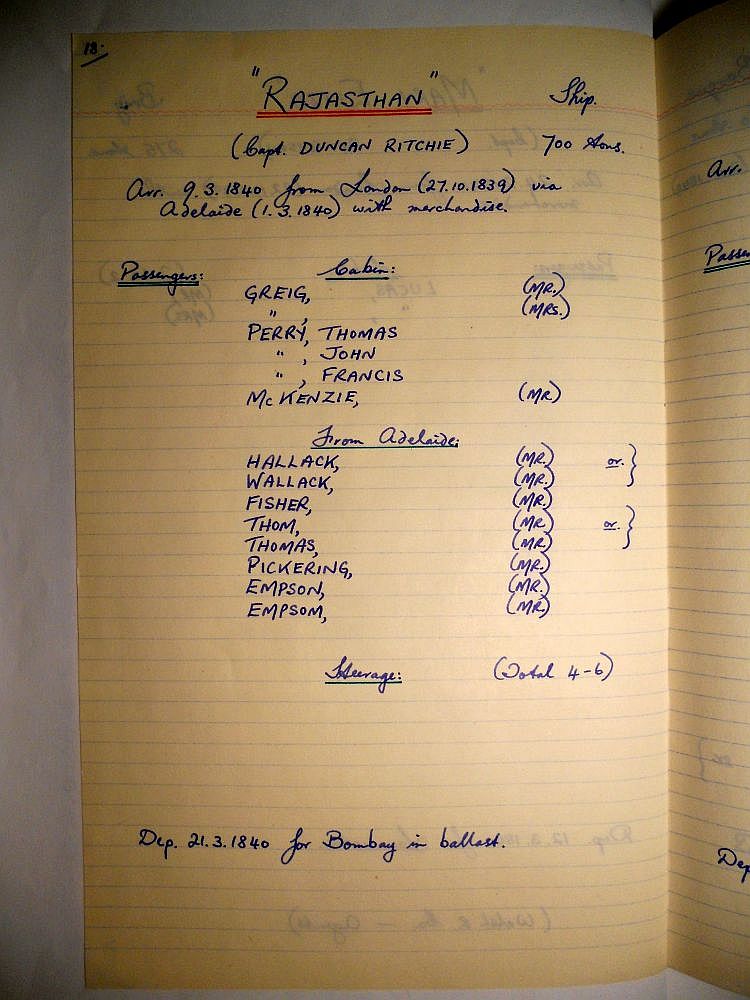 18.
"RAJASTHAN" Ship.
(Capt. DUNCAN RITCHIE) 700 tons.
Arr. 9.3.1840 from London (27.10.1839) via
Adelaide (1.3.1840) with merchandise.
Passengers: Cabin:
GREIG, (MR.)
" , (MRS.)
PERRY, THOMAS
" , JOHN
" , FRANCIS
McKENZIE, (MR)
From Adelaide:
HALLACK, (MR.) or. }
WALLACK, (MR.)
FISHER, (MR.)
THOM, (MR.) or. }
THOMAS, (MR.)
PICKERING, (MR.)
EMPSON, (MR.)
EMPSOM, (MR.)
Steerage: (Total 4-6)
Dep. 21.3.1840 for Bombay in ballast.
Arr.